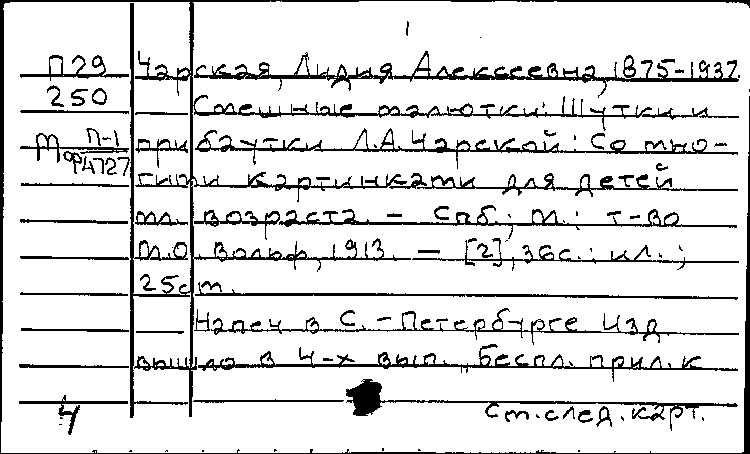 1
П29 Чарская, Лидия Алексеевна, 1875-1937.
250 Смешные малютки: Шутки и
М П-1 прибаутки Л.А. Чарской: Со мно-
фр4727
гими картинками для детей
мл. возраста. - Спб.; М.: т-во
М.О. Вольф, 1913. - [2], 36с.: ил.;
25см.
Напеч в С.-Петербурге Изд
вышло в 4-х вып. „Беспл. прил. к
4 См. след. карт.